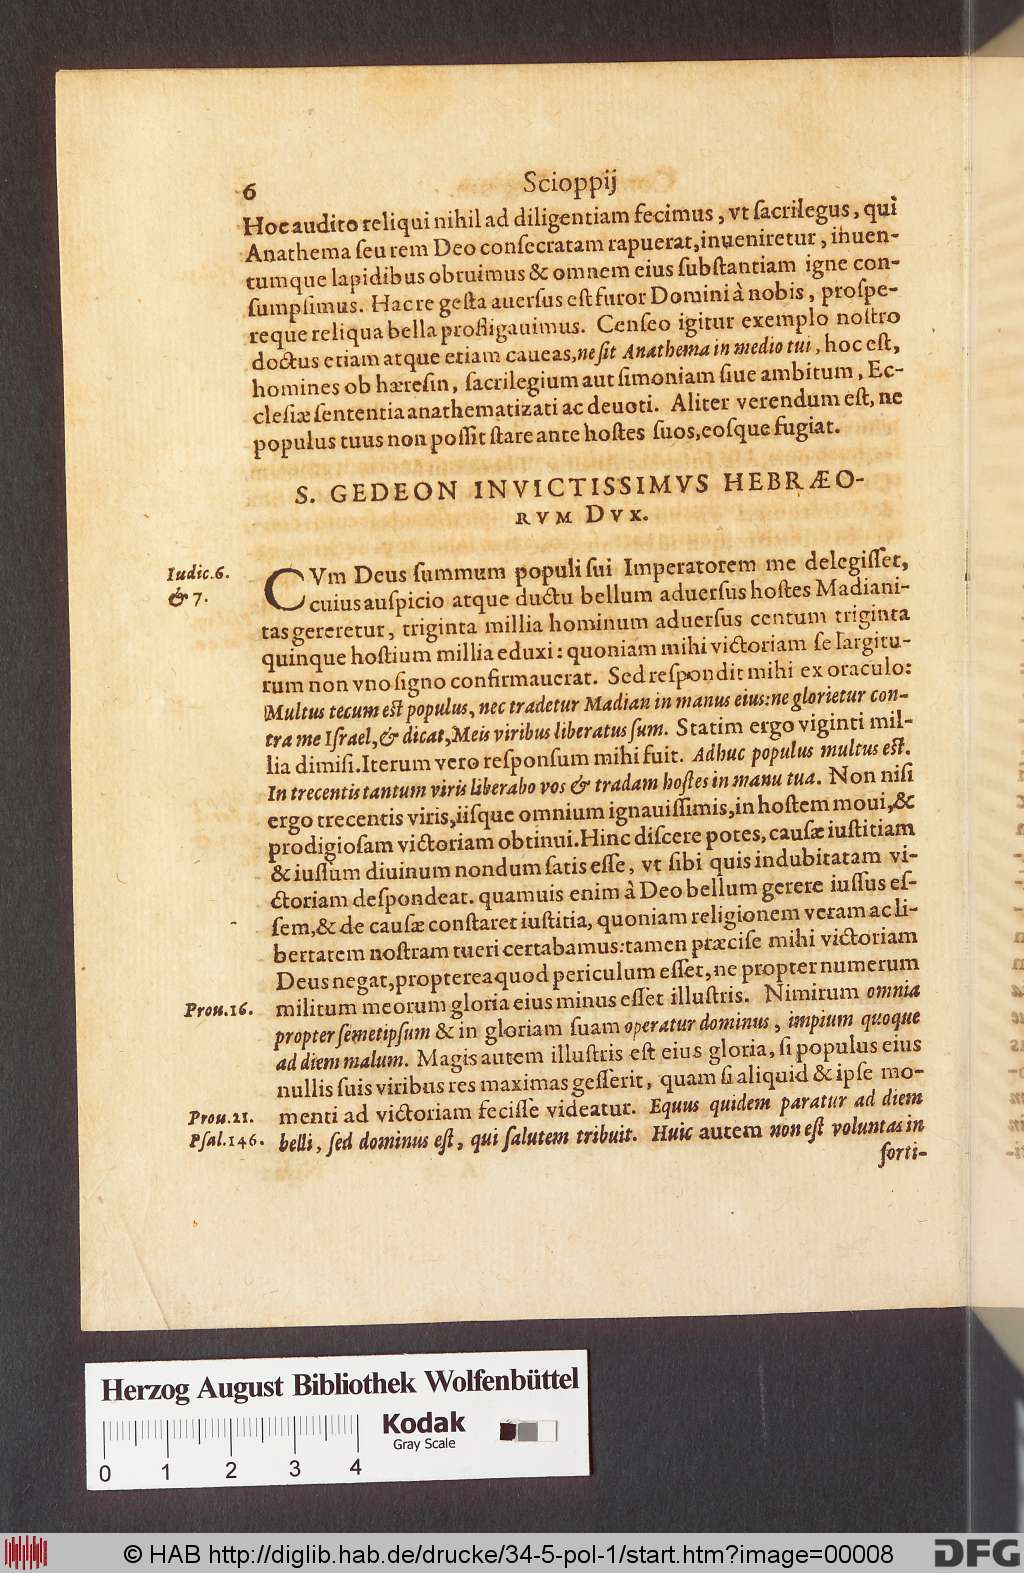 6
Scioppij
Hoc audito reliqui nihil ad diligentiam fecimus, vt sacrilegus, qui
Anathema seu rem Deo consecratam rapuerat, inueniretur, inuen-
tumque lapidibus obruimus & omnem eius substantiam igne con-
sumpsimus. Hac re gesta auersus est furor Domini à nobis, prospe-
reque reliqua bella profligauimus. Censeo igitur exemplo nostro
doctus etiam atque etiam caueas, ne sit Anathema in medio tui, hoc est,
homines ob hæresin, sacrilegium aut simoniam siue ambitum, Ec-
clesiæ sententia anathematizati ac deuoti. Aliter verendum est, ne
populus tuus non possit stare ante hostes suos, eosque fugiat.
S. GEDEON INVICTISSIMVS HEBRÆO-
RVM DVX.
Iudic.6.
& 7.
CVm Deus summum populi sui Imperatorem me delegisset,
cuius auspicio atque ductu bellum aduersus hostes Madiani-
tas gereretur, triginta millia hominum aduersus centum triginta
quinque hostium millia eduxi: quoniam mihi victoriam se largitu-
rum non vno signo confirmauerat. Sed respondit mihi ex oraculo:
Multus tecum est populus, nec tradetur Madian in manus eius: ne glorietur con-
tra me Israel, & dicat, Meis viribus liberatus sum. Statim ergo viginti mil-
lia dimisi. Iterum vero responsum mihi fuit. Adhuc populus multus est.
In trecentis tantum viris liberabo vos & tradam hostes in manu tua. Non nisi
ergo trecentis viris, iisque omnium ignauissimis, in hostem moui, &
prodigiosam victoriam obtinui. Hinc discere potes, causæ iustitiam
& iussum diuinum nondum satis esse, vt sibi quis indubitatam vi-
ctoriam despondeat. quamuis enim à Deo bellum gerere iussus es-
sem, & de causæ constaret iustitia, quoniam religionem veram ac li-
bertatem nostram tueri certabamus: tamen præcise mihi victoriam
Deus negat, propterea quod periculum esset, ne propter numerum
Prou.16.
militum meorum gloria eius minus esset illustris. Nimirum omnia
propter semetipsum & in gloriam suam operatur dominus, impium quoque
ad diem malum. Magis autem illustris est eius gloria, si populus eius
nullis suis viribus res maximas gesserit, quam si aliquid & ipse mo-
Prou.21.
menti ad victoriam fecisse videatur. Equus quidem paratur ad diem
Psal.146.
belli, sed dominus est, qui salutem tribuit. Huic autem non est voluntas in
forti-
Herzog August Bibliothek Wolfenbüttel
Kodak
Gray Scale
0 1 2 3 4
© HAB http://diglib.hab.de/drucke/34-5-pol-1/start.htm?image=00008
DFG